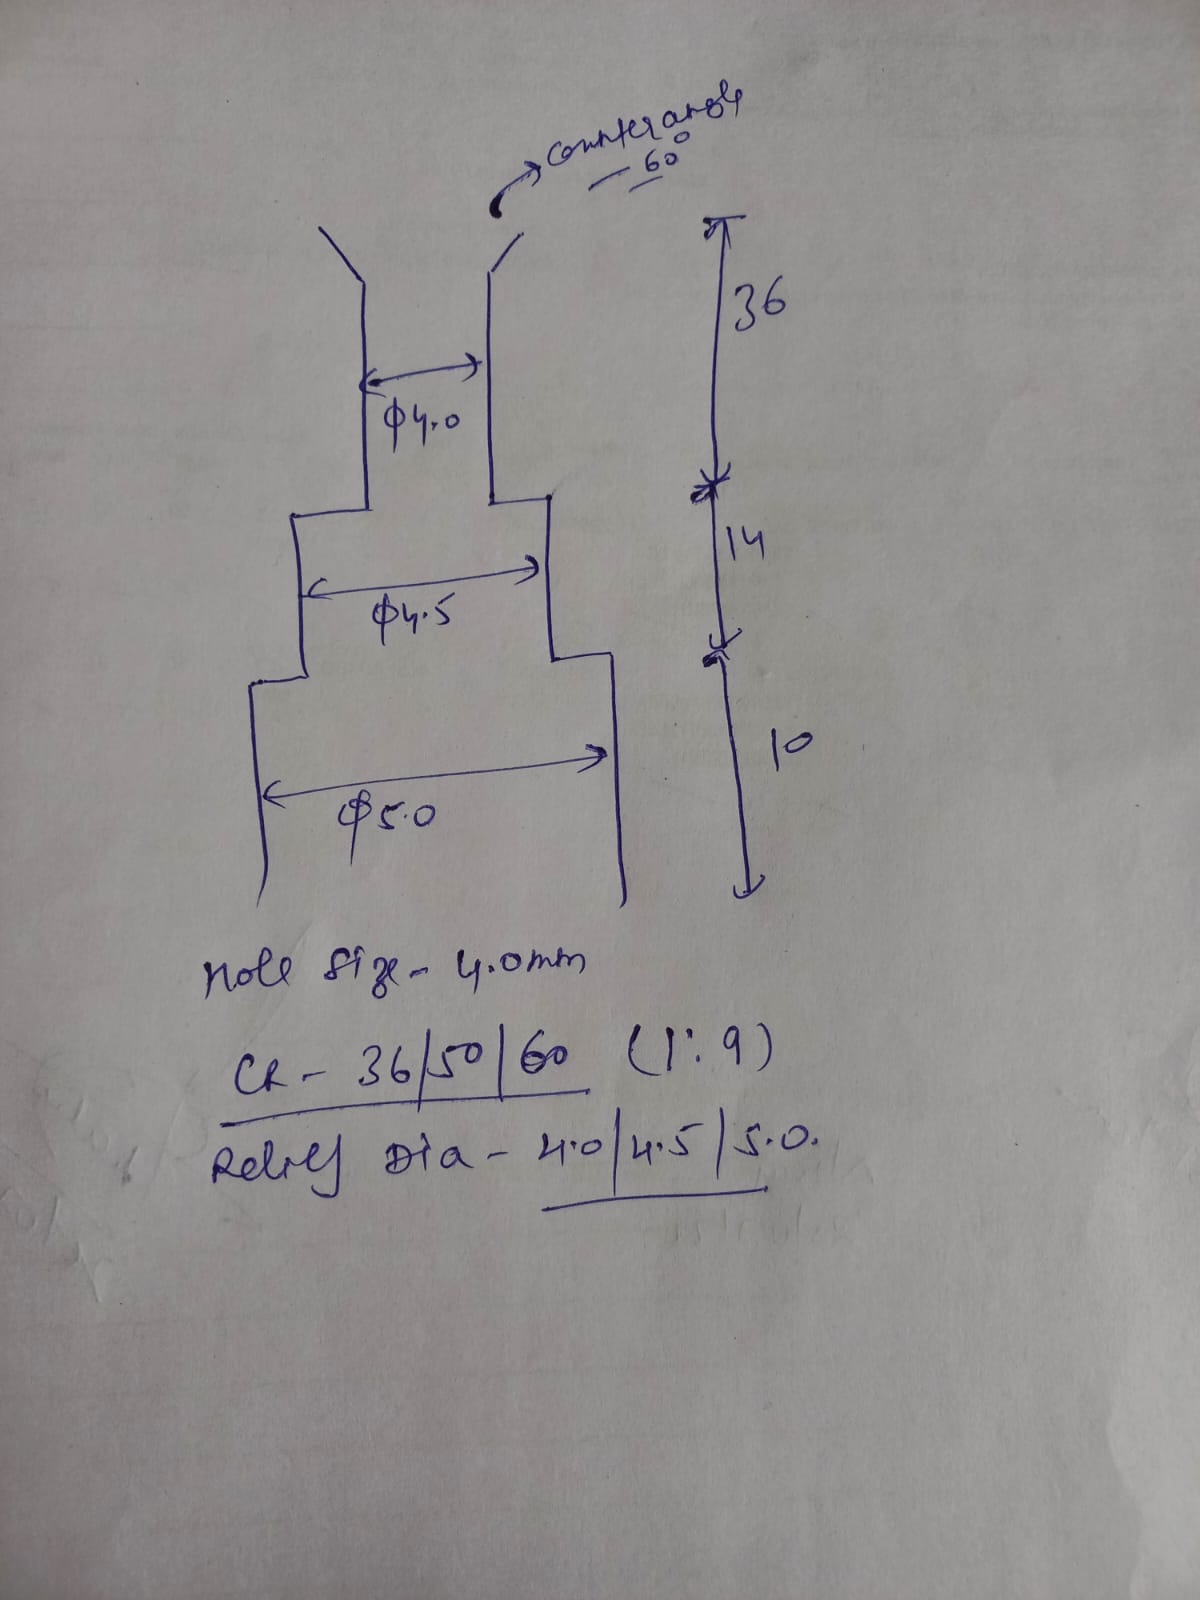 counter angle
- 60°
36
φ4.0
14
φ4.5
10
φ5.0
Hole size - 4.0mm
CR - 36/50/60 (1:9)
Relief Dia - 4.0/4.5/5.0.